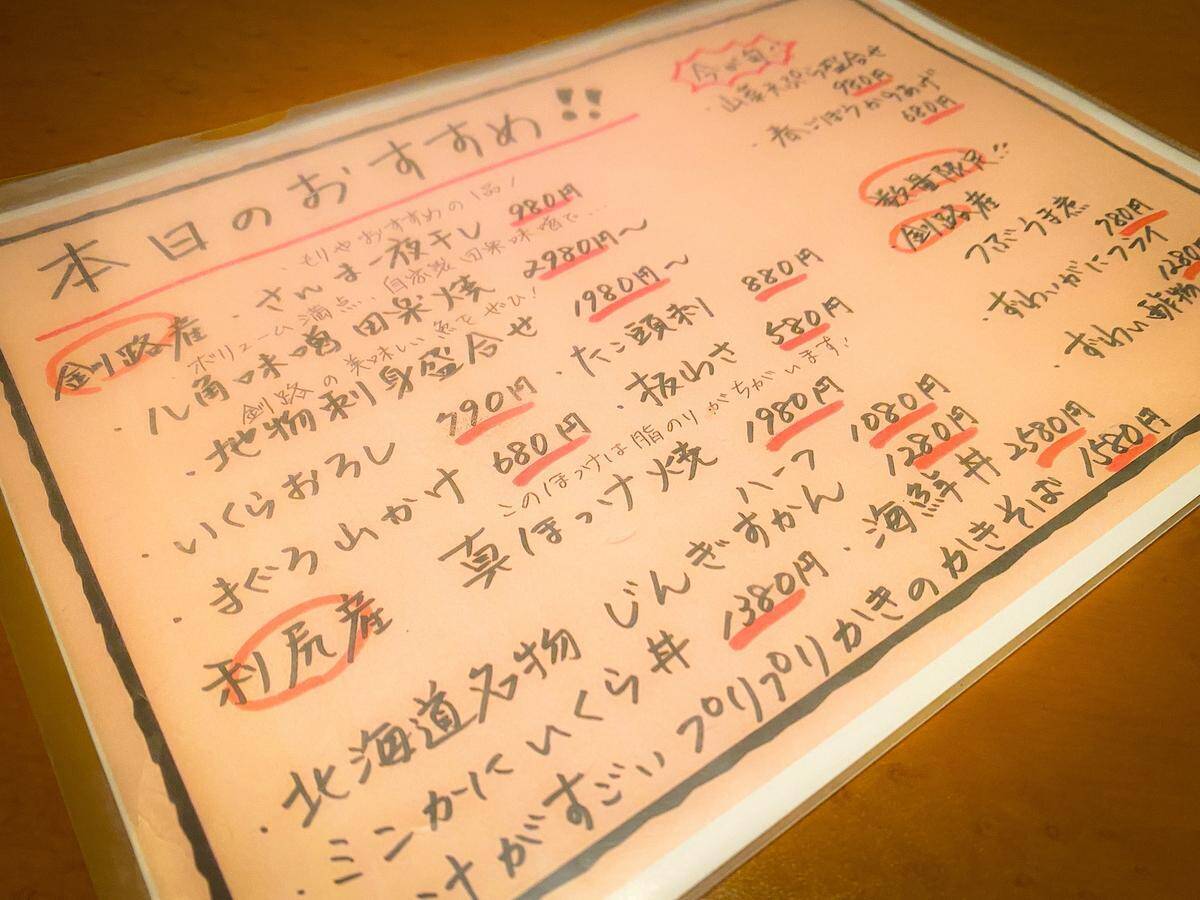 本日のおすすめ!!
もりやおすすめの1品!
釧路産 ・さんま一夜干し 980円
ボリューム満点… 自家製 田楽味噌で…
・八角味噌田楽焼 2980円〜
釧路の美味しい魚をぜひ!
・地物刺身盛合せ 1980円〜
・いくらおろし 390円 ・たこ頭刺 880円
・まぐろ山かけ 680円 ・板わさ 580円
このほっけは脂のりがちがいます!
利尻産 真ほっけ焼 1980円
ハーフ 1080円
・北海道名物 じんぎすかん 1280円
・ミニかにいくら丼 1380円 ・海鮮丼 2580円
汁がすごい プリプリかきのかきそば 1580円
今が旬!
・山菜天ぷら盛合せ 980円
・春ごぼうからあげ 680円
数量限定!!
釧路産 つぶうま煮 780円
・ずわいがにフライ 1280
・ずわい酢物